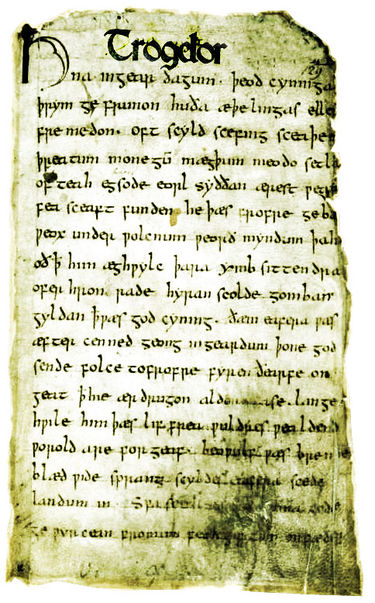 Trogetor
na ingear dagum. þeod cyninga
þrym ge frunon huða æþelingas elle
fre medon. oft scyld scefing sceaþe
þreatum monegū mægþum meodo setla
of teah egsode eorl syððan ærest ƿear
fea sceaft funden he þæs frofre geba
ƿeox under ƿolcnum ƿeorð myndum þah
oð ꝥ him æghƿylc þara ymb sittendra
ofer hron rade hyran scolde gomban
gyldan þæs god cyning. ðæm eafera ƿæs
æfter cenned geong in geardum þone god
sende folce tofrofre fyren ðearfe on
geat ꝥ hie ær drugon aldor ase. lange
hƿile him þæs lif frea ƿuldres ƿealdend
ƿorold are for geaf. beoƿulf ƿæs breme
blæd ƿide sprang scyldes eafera scede
landum in. guma gode
ge ƿyrcean fromum